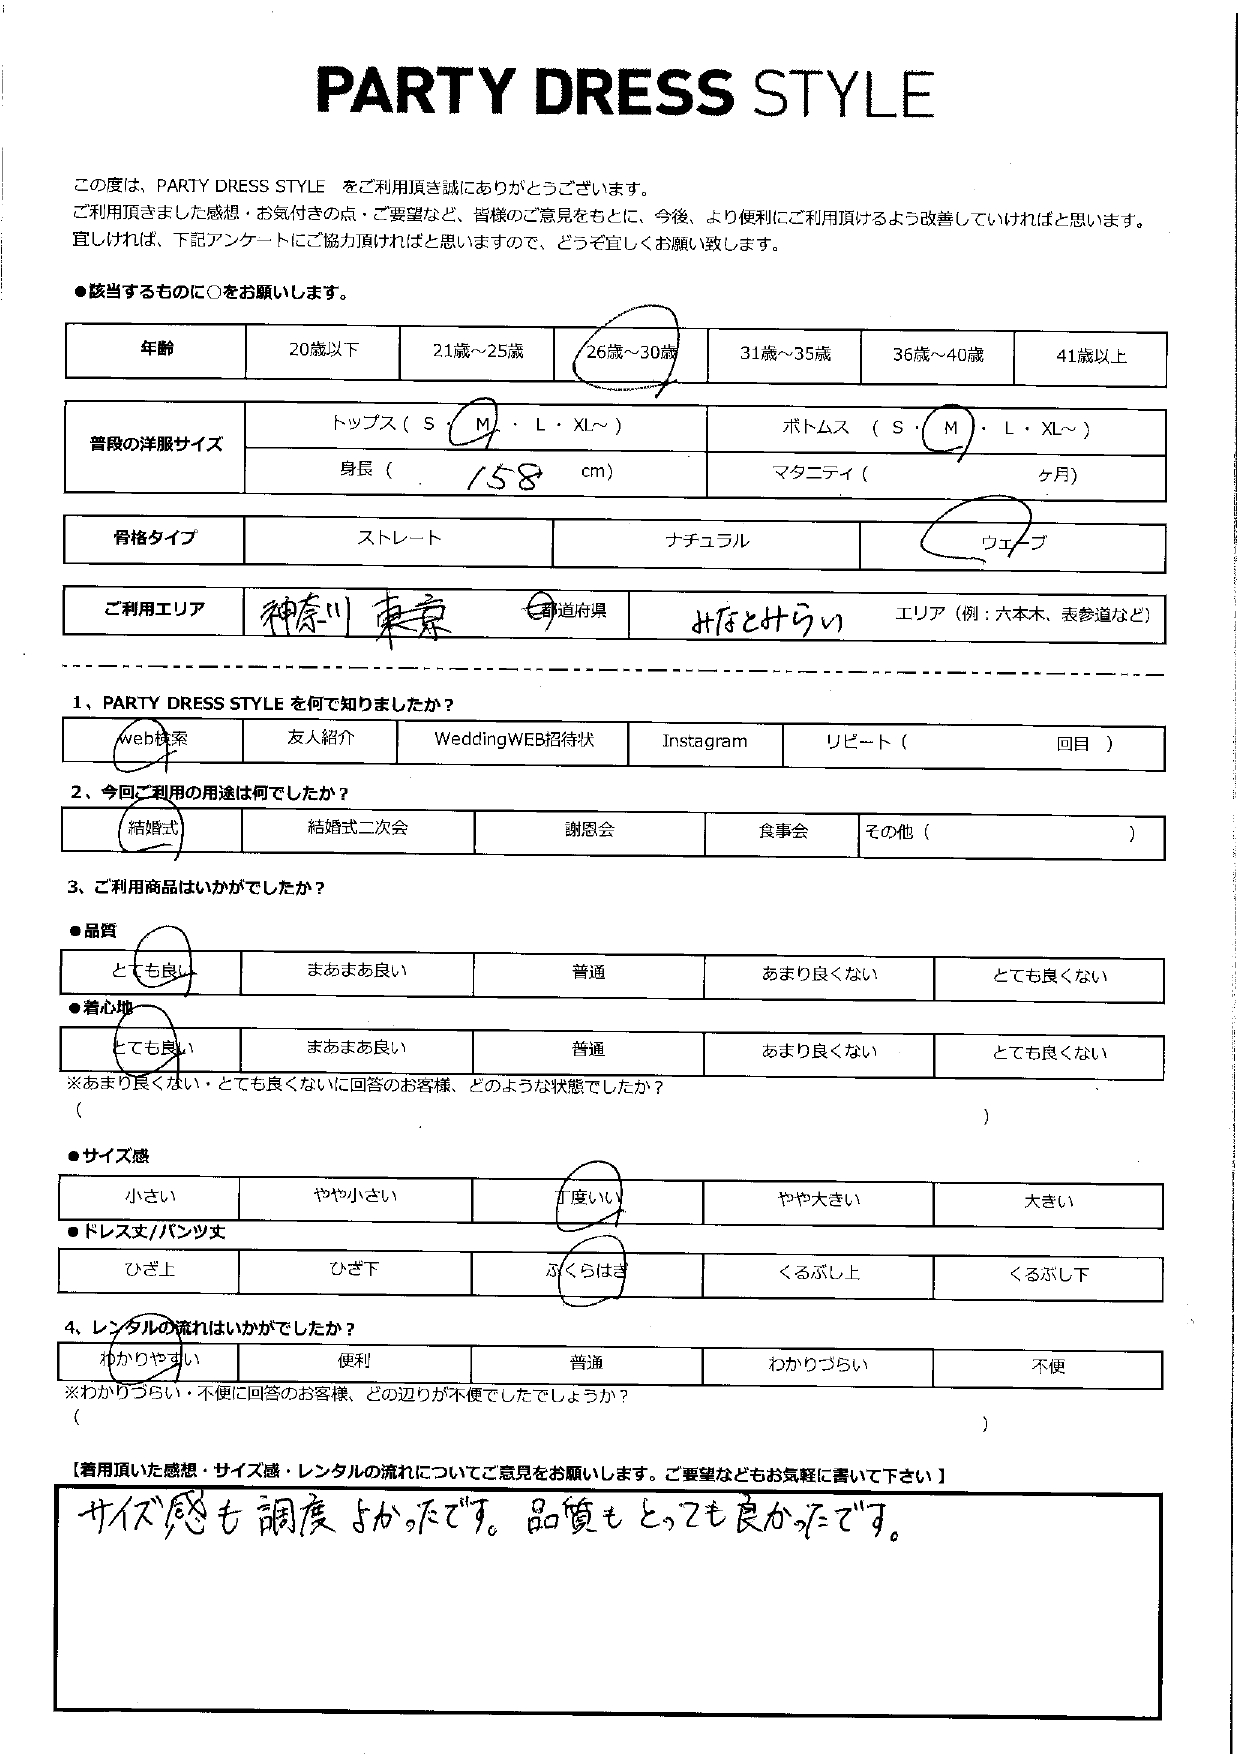 PARTY DRESS STYLE
この度は、PARTY DRESS STYLE をご利用頂き誠にありがとうございます。
ご利用頂きました感想・お気付きの点・ご要望など、皆様のご意見をもとに、今後、より便利にご利用頂けるよう改善していければと思います。
宜しければ、下記アンケートにご協力頂ければと思いますので、どうぞ宜しくお願い致します。
●該当するものに○をお願いします。
年齢 20歳以下 21歳～25歳 26歳～30歳 31歳～35歳 36歳～40歳 41歳以上
普段の洋服サイズ トップス ( S ・ M ・ L ・ XL～ ) ボトムス ( S ・ M ・ L ・ XL～ )
身長 ( 158 cm) マタニティ ( ケ月)
骨格タイプ ストレート ナチュラル ウェーブ
ご利用エリア 神奈川 東京 都道府県 みなとみらい エリア（例：六本木、表参道など）
1、PARTY DRESS STYLE を何で知りましたか？
web検索 友人紹介 WeddingWEB招待状 Instagram リピート ( 回目 )
2、今回ご利用の用途は何でしたか？
結婚式 結婚式二次会 謝恩会 食事会 その他 ( )
3、ご利用商品はいかがでしたか？
●品質
とても良い まあまあ良い 普通 あまり良くない とても良くない
●着心地
とても良い まあまあ良い 普通 あまり良くない とても良くない
※あまり良くない・とても良くないに回答のお客様、どのような状態でしたか？
( )
●サイズ感
小さい やや小さい 丁度いい やや大きい 大きい
●ドレス丈/パンツ丈
ひざ上 ひざ下 ふくらはぎ くるぶし上 くるぶし下
4、レンタルの流れはいかがでしたか？
わかりやすい 便利 普通 わかりづらい 不便
※わかりづらい・不便に回答のお客様、どの辺りが不便でしたでしょうか？
( )
【着用頂いた感想・サイズ感・レンタルの流れについてご意見をお願いします。ご要望などもお気軽に書いて下さい】
サイズ感も調度よかったです。品質もとっても良かったです。